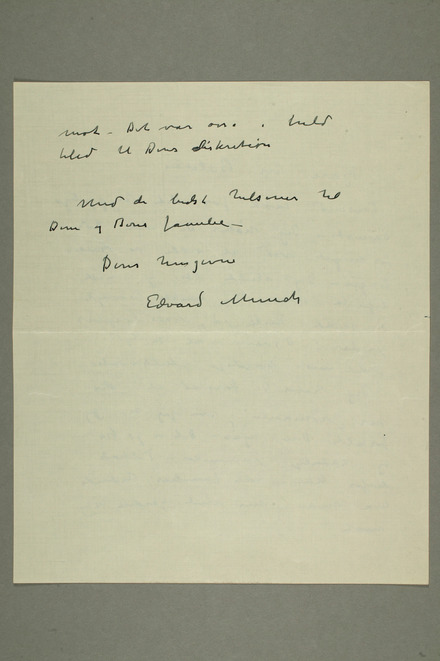 mot – Det var osså i
til Deres diskretion
Med de bedste hilsener til
Dem og Deres familie –
Deres hengivne
Edvard Munch